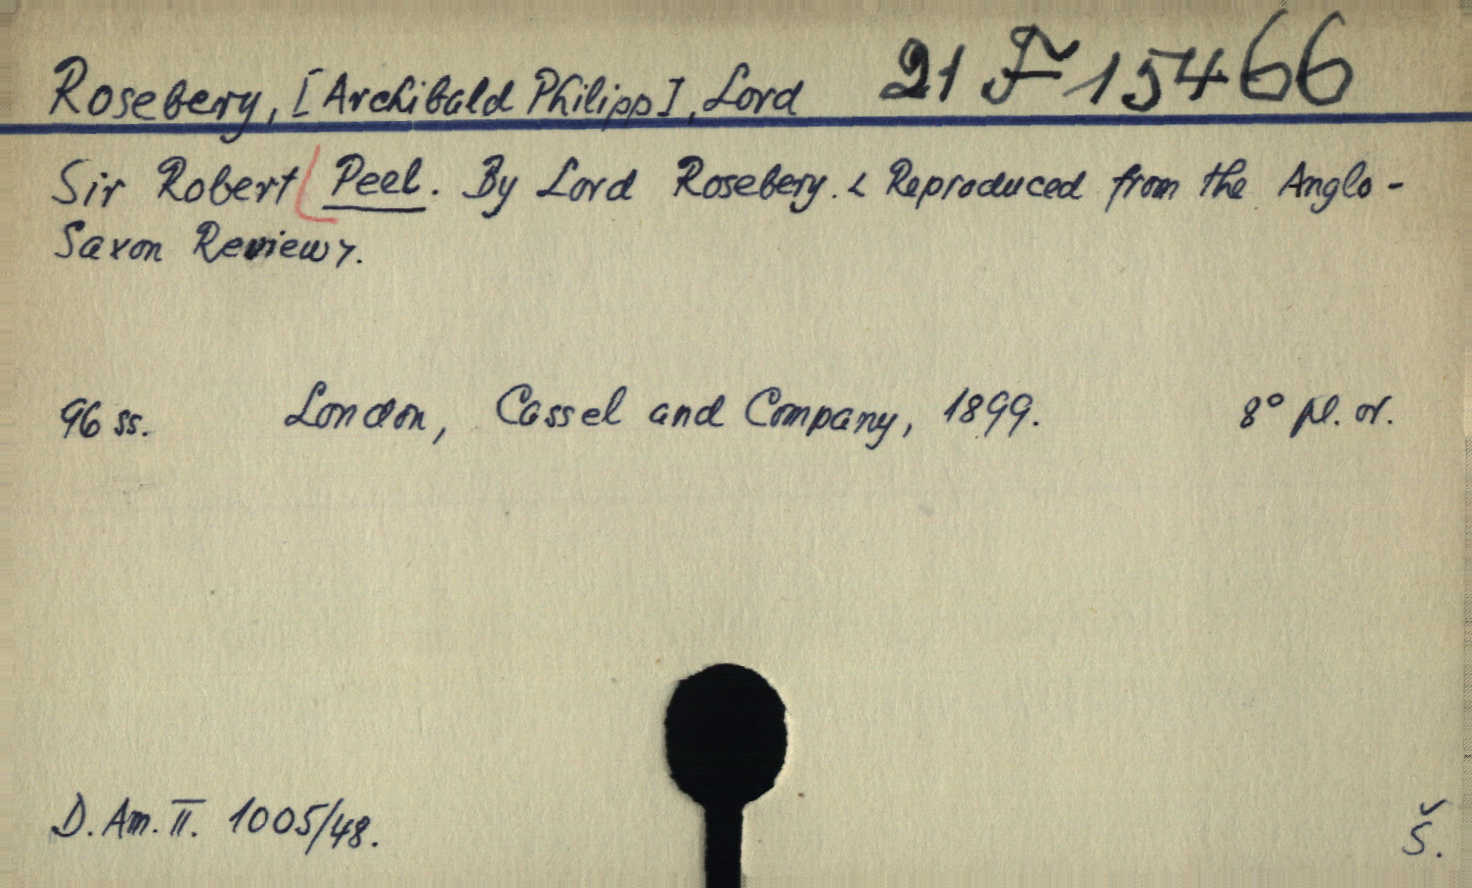 Rosebery, [Archibald Philipp], Lord 21 F 15466
Sir Robert Peel. By Lord Rosebery. < Reproduced from the Anglo-
Saxon Review>.
96 ss. London, Cassel and Company, 1899. 8° pl. or.
D. Am. II. 1005/48. Š.